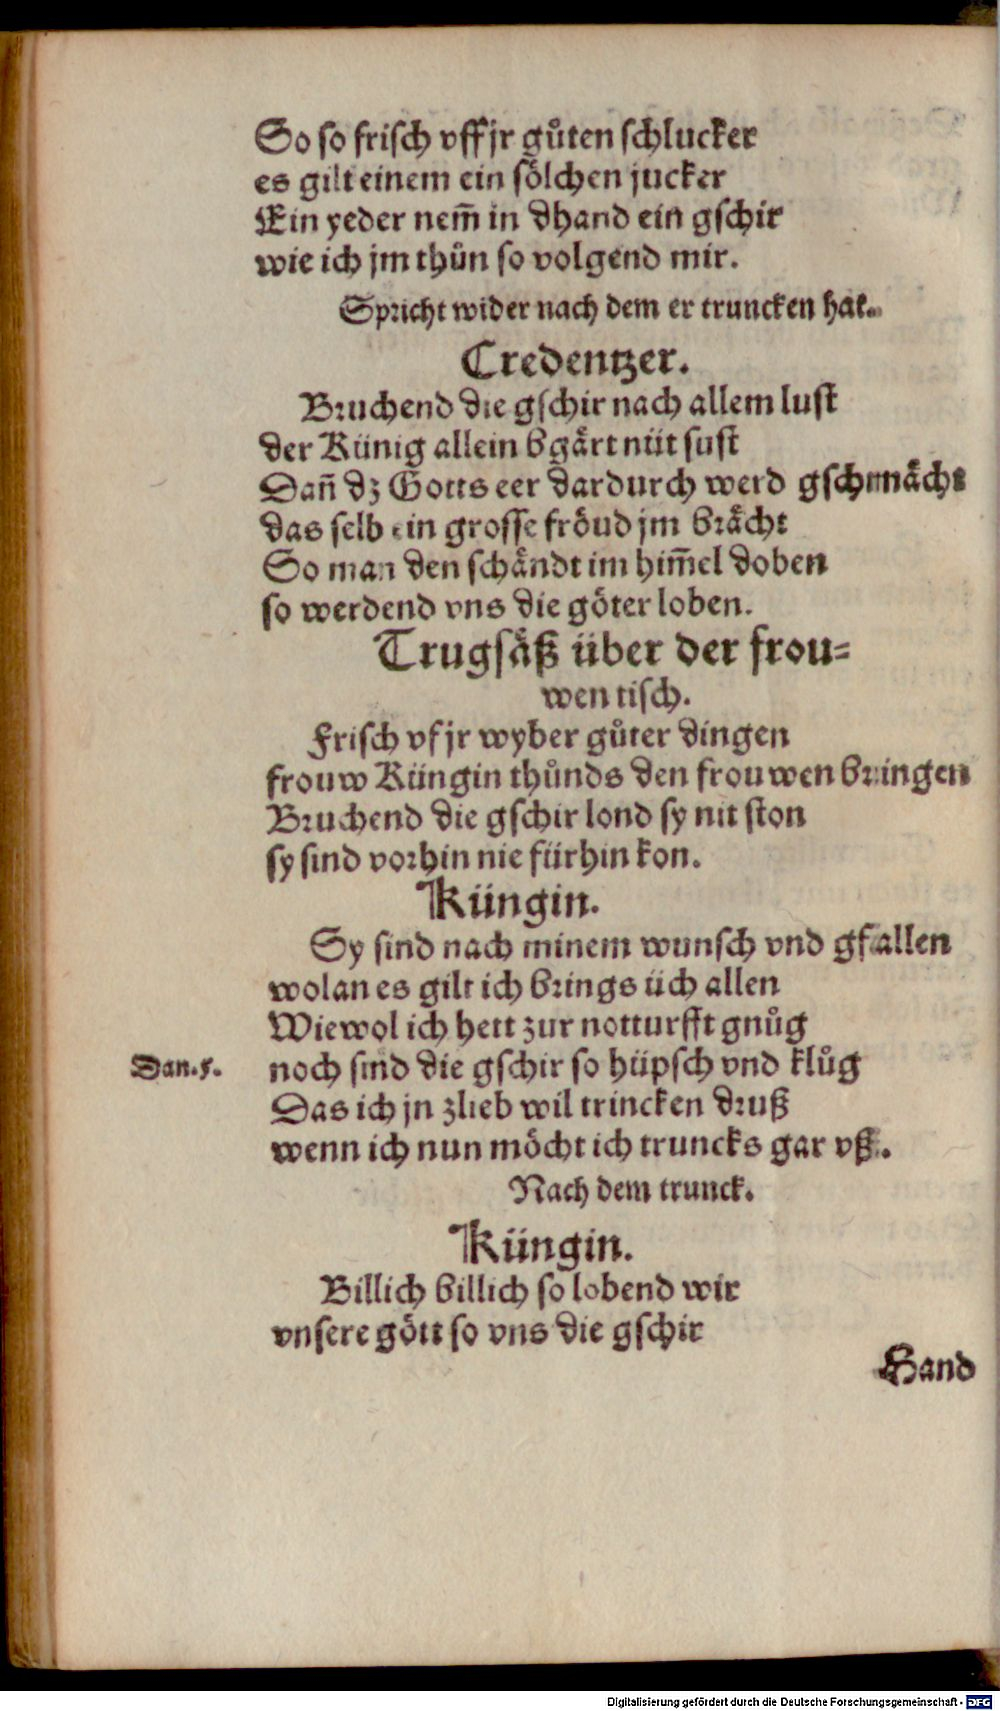 So so frisch vff jr gůten schlucker
es gilt einem ein sölchen jucker
Ein yeder nem̄ in dhand ein gschir
wie ich jm thůn so volgend mir.
Spricht wider nach dem er truncken hat.
Credentzer.
Bruchend die gschir nach allem lust
der Künig allein bgärt nüt sust
Dañ dz Gotts eer dardurch werd gschmächt
das selb ein grosse fröud jm brächt
So man den schändt im him̄el doben
so werdend vns die göter loben.
Trugsäß über der frou⸗
wen tisch.
Frisch vf jr wyber gůter dingen
frouw Küngin thůnds den frouwen bringen
Bruchend die gschir lond sy nit ston
sy sind vorhin nie fürhin kon.
Küngin.
Sy sind nach minem wunsch vnd gfallen
wolan es gilt ich brings üch allen
Wiewol ich hett zur notturfft gnůg
Dan.5.
noch sind die gschir so hüpsch vnd klůg
Das ich jn zlieb wil trincken druß
wenn ich nun möcht ich truncks gar vß.
Nach dem trunck.
Küngin.
Billich billich so lobend wir
vnsere gött so vns die gschir
Hand
Digitalisierung gefördert durch die Deutsche Forschungsgemeinschaft - DFG